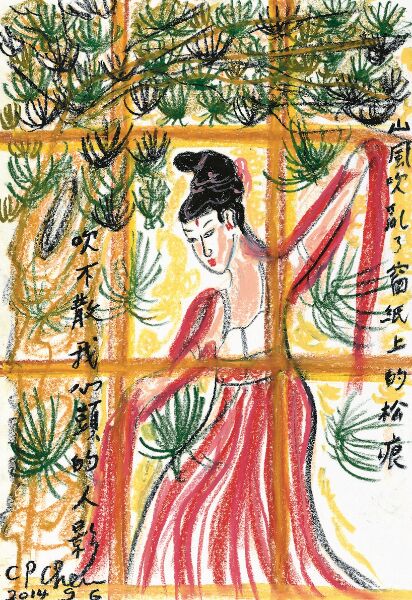 山風吹亂了窗紙上的松痕
吹不散我心頭的人影
CP Chen
2014 9 6